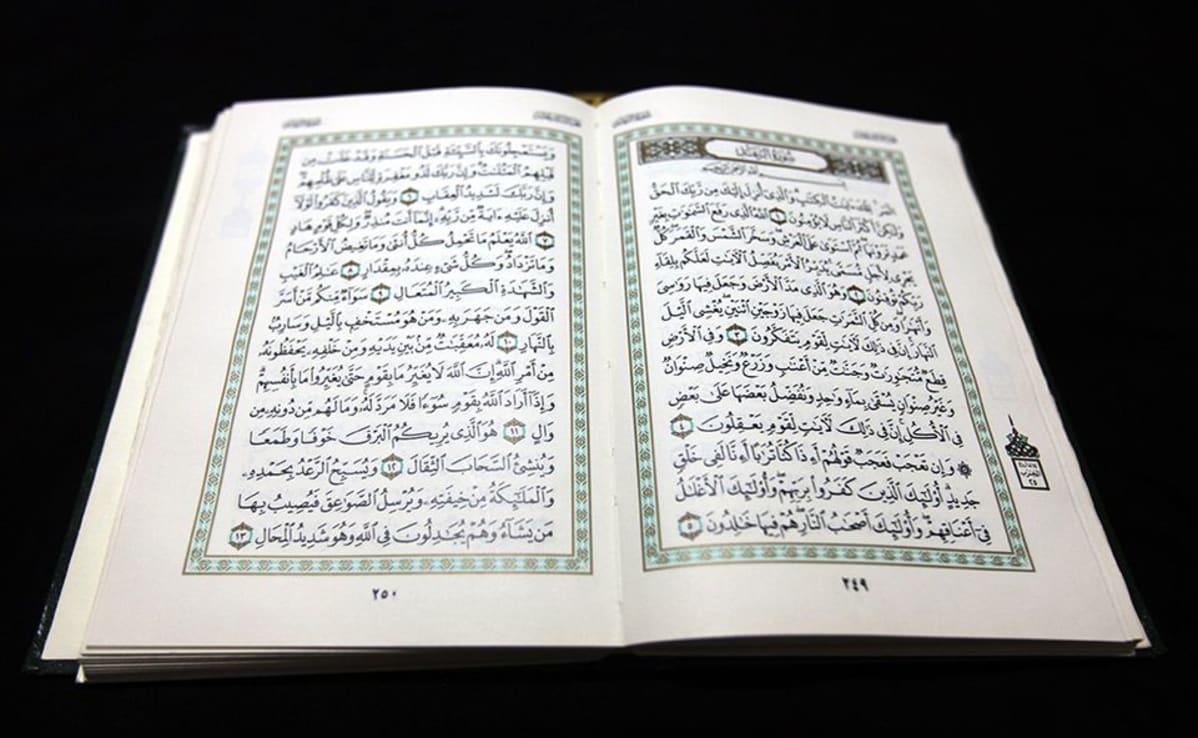 سُورَةُ الرَّعْدِ
بِسْمِ اللَّهِ الرَّحْمَٰنِ الرَّحِيمِ
الٓمٓرۚ تِلْكَ ءَايَٰتُ ٱلْكِتَٰبِۗ وَٱلَّذِىٓ أُنزِلَ إِلَيْكَ مِن رَّبِّكَ ٱلْحَقُّ
وَلَٰكِنَّ أَكْثَرَ ٱلنَّاسِ لَا يُؤْمِنُونَ ١ ٱللَّهُ ٱلَّذِى رَفَعَ ٱلسَّمَٰوَٰتِ بِغَيْرِ
عَمَدٍ تَرَوْنَهَاۖ ثُمَّ ٱسْتَوَىٰ عَلَى ٱلْعَرْشِۖ وَسَخَّرَ ٱلشَّمْسَ وَٱلْقَمَرَۖ كُلٌّ
يَجْرِى لِأَجَلٍ مُّسَمًّىۚ يُدَبِّرُ ٱلْأَمْرَ يُفَصِّلُ ٱلْءَايَٰتِ لَعَلَّكُم بِلِقَآءِ
رَبِّكُمْ تُوقِنُونَ ٢ وَهُوَ ٱلَّذِى مَدَّ ٱلْأَرْضَ وَجَعَلَ فِيهَا رَوَٰسِىَ
وَأَنْهَٰرًاۖ وَمِن كُلِّ ٱلثَّمَرَٰتِ جَعَلَ فِيهَا زَوْجَيْنِ ٱثْنَيْنِۖ يُغْشِى ٱلَّيْلَ
ٱلنَّهَارَۚ إِنَّ فِى ذَٰلِكَ لَءَايَٰتٍ لِّقَوْمٍ يَتَفَكَّرُونَ ٣ وَفِى ٱلْأَرْضِ
قِطَعٌ مُّتَجَٰوِرَٰتٌ وَجَنَّٰتٌ مِّنْ أَعْنَٰبٍ وَزَرْعٌ وَنَخِيلٌ صِنْوَانٌ
وَغَيْرُ صِنْوَانٍ يُسْقَىٰ بِمَآءٍ وَٰحِدٍ وَنُفَضِّلُ بَعْضَهَا عَلَىٰ بَعْضٍ
فِى ٱلْأُكُلِۚ إِنَّ فِى ذَٰلِكَ لَءَايَٰتٍ لِّقَوْمٍ يَعْقِلُونَ ٤
۞ وَإِن تَعْجَبْ فَعَجَبٌ قَوْلُهُمْ أَءِذَا كُنَّا تُرَٰبًا أَءِنَّا لَفِى خَلْقٍ
جَدِيدٍۗ أُو۟لَٰٓئِكَ ٱلَّذِينَ كَفَرُوا۟ بِرَبِّهِمْۖ وَأُو۟لَٰٓئِكَ ٱلْأَغْلَٰلُ
فِىٓ أَعْنَاقِهِمْۖ وَأُو۟لَٰٓئِكَ أَصْحَٰبُ ٱلنَّارِۖ هُمْ فِيهَا خَٰلِدُونَ ٥
٢٤٩
الحزب
٢٥
وَيَسْتَعْجِلُونَكَ بِٱلسَّيِّئَةِ قَبْلَ ٱلْحَسَنَةِ وَقَدْ خَلَتْ مِن
قَبْلِهِمُ ٱلْمَثُلَٰتُۗ وَإِنَّ رَبَّكَ لَذُو مَغْفِرَةٍ لِّلنَّاسِ عَلَىٰ ظُلْمِهِمْۖ
وَإِنَّ رَبَّكَ لَشَدِيدُ ٱلْعِقَابِ ٦ وَيَقُولُ ٱلَّذِينَ كَفَرُوا۟ لَوْلَآ
أُنزِلَ عَلَيْهِ ءَايَةٌ مِّن رَّبِّهِۦٓۗ إِنَّمَآ أَنتَ مُنذِرٌۖ وَلِكُلِّ قَوْمٍ هَادٍ
٧ ٱللَّهُ يَعْلَمُ مَا تَحْمِلُ كُلُّ أُنثَىٰ وَمَا تَغِيضُ ٱلْأَرْحَامُ
وَمَا تَزْدَادُۖ وَكُلُّ شَىْءٍ عِندَهُۥ بِمِقْدَارٍ ٨ عَٰلِمُ ٱلْغَيْبِ
وَٱلشَّهَٰدَةِ ٱلْكَبِيرُ ٱلْمُتَعَالِ ٩ سَوَآءٌ مِّنكُم مَّنْ أَسَرَّ
ٱلْقَوْلَ وَمَن جَهَرَ بِهِۦ وَمَنْ هُوَ مُسْتَخْفٍۭ بِٱلَّيْلِ وَسَارِبٌۢ
بِٱلنَّهَارِ ١٠ لَهُۥ مُعَقِّبَٰتٌ مِّنۢ بَيْنِ يَدَيْهِ وَمِنْ خَلْفِهِۦ يَحْفَظُونَهُۥ
مِنْ أَمْرِ ٱللَّهِۗ إِنَّ ٱللَّهَ لَا يُغَيِّرُ مَا بِقَوْمٍ حَتَّىٰ يُغَيِّرُوا۟ مَا بِأَنفُسِهِمْۗ
وَإِذَآ أَرَادَ ٱللَّهُ بِقَوْمٍ سُوٓءًا فَلَا مَرَدَّ لَهُۥۚ وَمَا لَهُم مِّن دُونِهِۦ مِن
وَالٍ ١١ هُوَ ٱلَّذِى يُرِيكُمُ ٱلْبَرْقَ خَوْفًا وَطَمَعًا
وَيُنشِئُ ٱلسَّحَابَ ٱلثِّقَالَ ١٢ وَيُسَبِّحُ ٱلرَّعْدُ بِحَمْدِهِۦ
وَٱلْمَلَٰٓئِكَةُ مِنْ خِيفَتِهِۦ وَيُرْسِلُ ٱلصَّوَٰعِقَ فَيُصِيبُ بِهَا
مَن يَشَآءُ وَهُمْ يُجَٰدِلُونَ فِى ٱللَّهِ وَهُوَ شَدِيدُ ٱلْمِحَالِ ١٣
٢٥٠